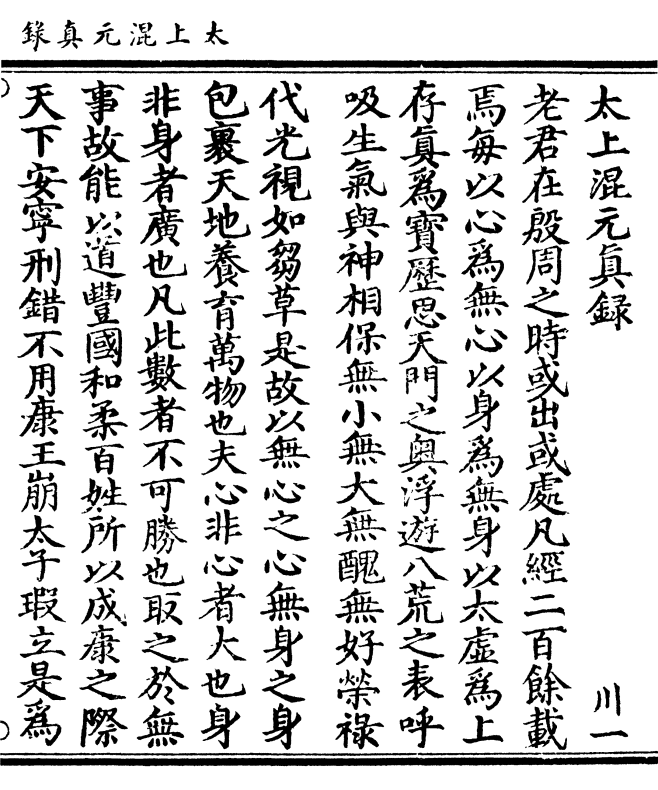 太上混元真録
太上混元真録 川一
老君在殷周之時或出或處凡經二百餘載
焉每以心爲無心以身爲無身以太虛爲上
存真爲寶歷思天門之奧浮遊八荒之表呼
吸生氣與神相保無小無大無醜無好榮祿
代光視如芻草是故以無心之心無身之身
包裹天地養育萬物也夫心非心者大也身
非身者廣也凡此數者不可勝也取之於無
事故能以道豐國和柔百姓所以成康之際
天下安寧刑錯不用康王崩太子瑕立是爲